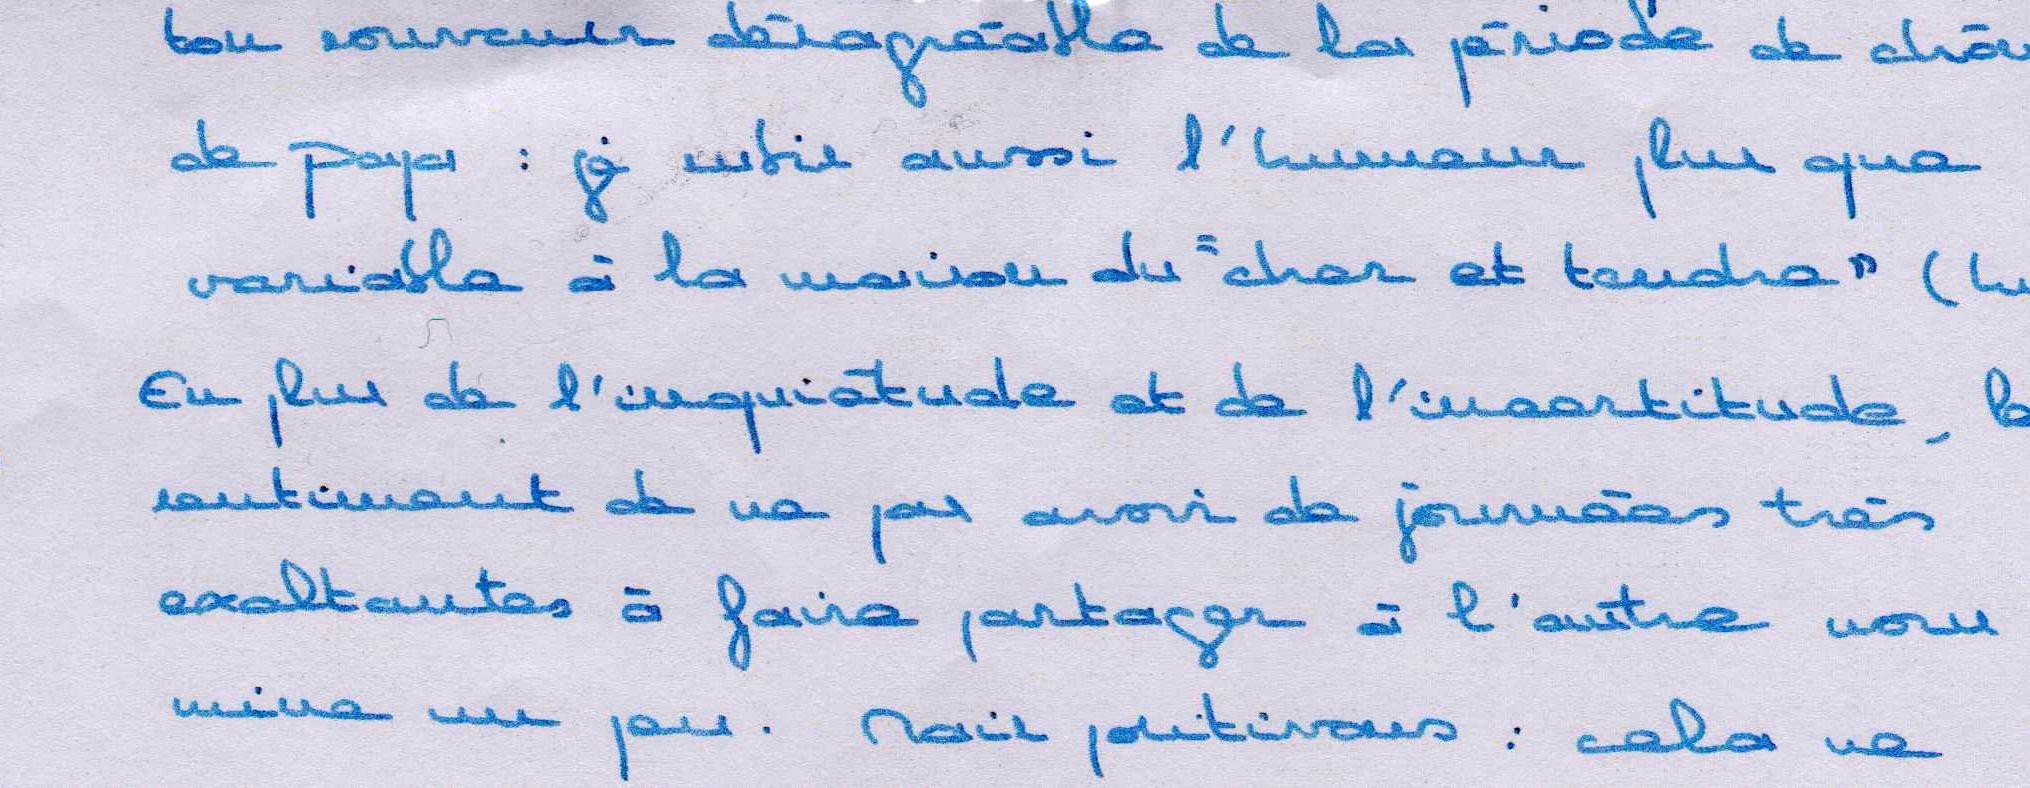 ton souvenir désagréable de la période de chôm
de papa : je subis aussi l'humeur plus que
variable à la maison du "cher et tendre" (hu
En plus de l'inquiétude et de l'incertitude, le
sentiment de ne pas avoir de journées très
exaltantes à faire partager à l'autre nous
mine un peu. Mais positivons : cela ne